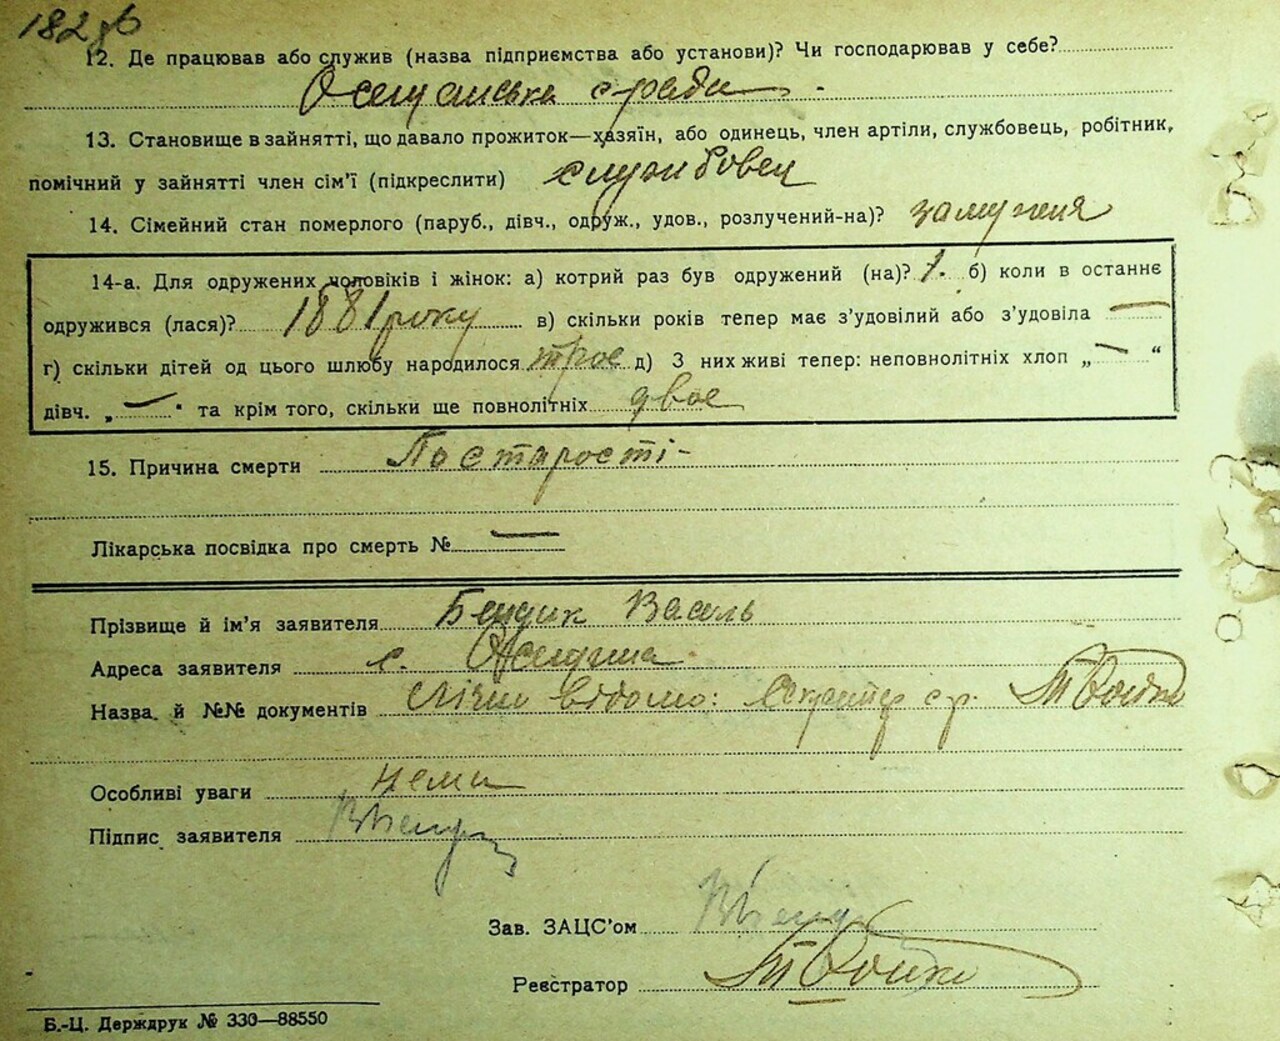 182зв
12. Де працював або служив (назва підприємства або установи)? Чи господарював у себе?
с ради
13. Становище в зайнятті, що давало прожиток—хазяїн, або одинець, член артіли, службовець, робітник,
помічний у зайнятті член сім'ї (підкреслити) службовец
14. Сімейний стан померлого (паруб., дівч., одруж., удов., розлучений-на)? замужня
14-а. Для одружених чоловіків і жінок: а) котрий раз був одружений (на)? 1. б) коли в останнє
одружився (лася)? 1881 року в) скільки років тепер має з'удовілий або з'удовіла —
г) скільки дітей од цього шлюбу народилося троє д) З них живі тепер: неповнолітніх хлоп „ — “
дівч. „ — " та крім того, скільки ще повнолітніх двоє
15. Причина смерти По старості -
Лікарська посвідка про смерть № —
Прізвище й ім'я заявителя Бендик Василь
Адреса заявителя с.
Назва й №№ документів відомо: Секретар с.р.
Особливі уваги нема
Підпис заявителя
Зав. ЗАЦС'ом
Реєстратор
Б.-Ц. Держдрук № 330—88550